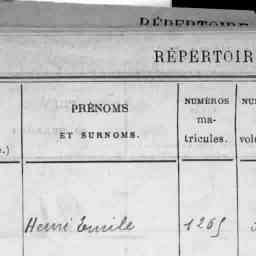 RÉPERTOIRE
RÉPERTOIR
PRÉNOMS
ET SURNOMS.
NUMÉROS
ma-
tricules.
NU
vol
.)
Henri Emile
1265